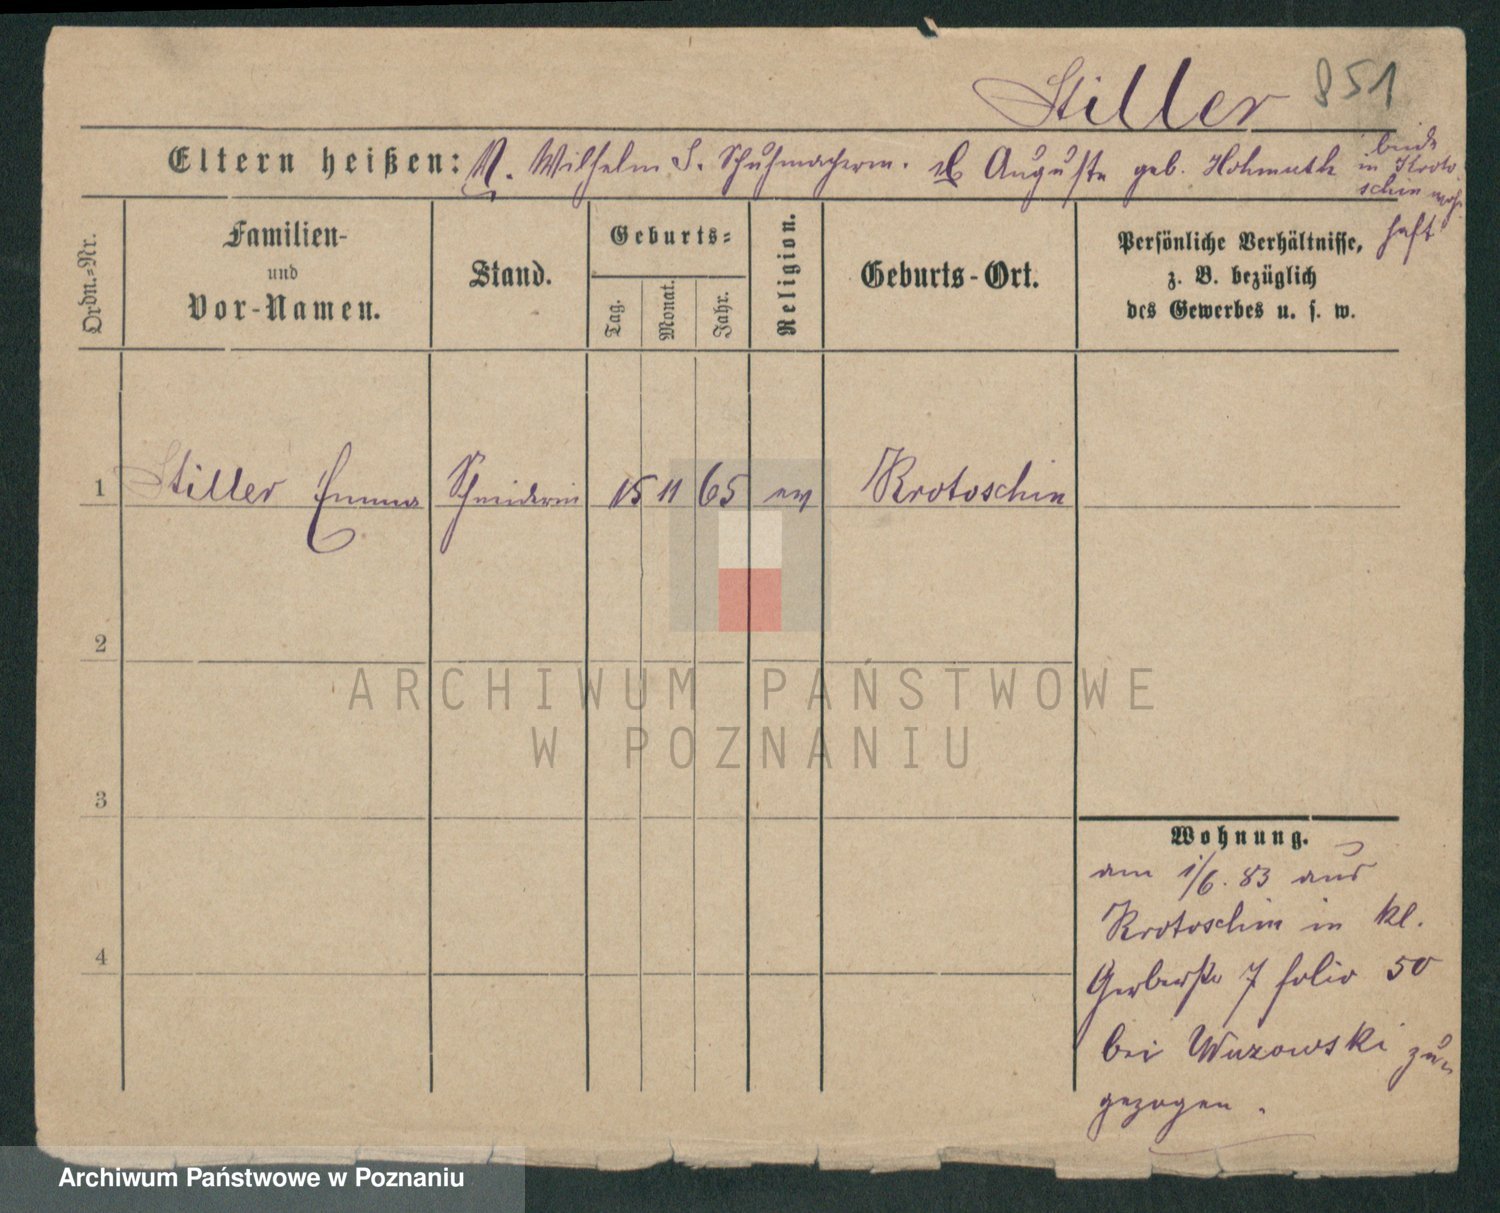 Stiller 851
Eltern heißen: V. Wilhelm S. Schuhmacherm. M Auguste geb. Hohmuth beide
in Kroto-
schin wohn-
haft
Ordn.=Nr.
Familien-
und
Vor-Namen.
Stand.
Geburts=
Tag.
Monat.
Jahr.
Religion.
Geburts-Ort.
Persönliche Verhältnisse,
z. B. bezüglich
des Gewerbes u. s. w.
1 Stiller Emma Schneiderin 15 11 65 ev Krotoschin
2
ARCHIWUM PAŃSTWOWE
W POZNANIU
3
Wohnung.
am 1/6. 83 aus
Krotoschin in kl.
4
Gerberstr 7 folio 50
bei Wuzowski zu-
gezogen.
Archiwum Państwowe w Poznaniu